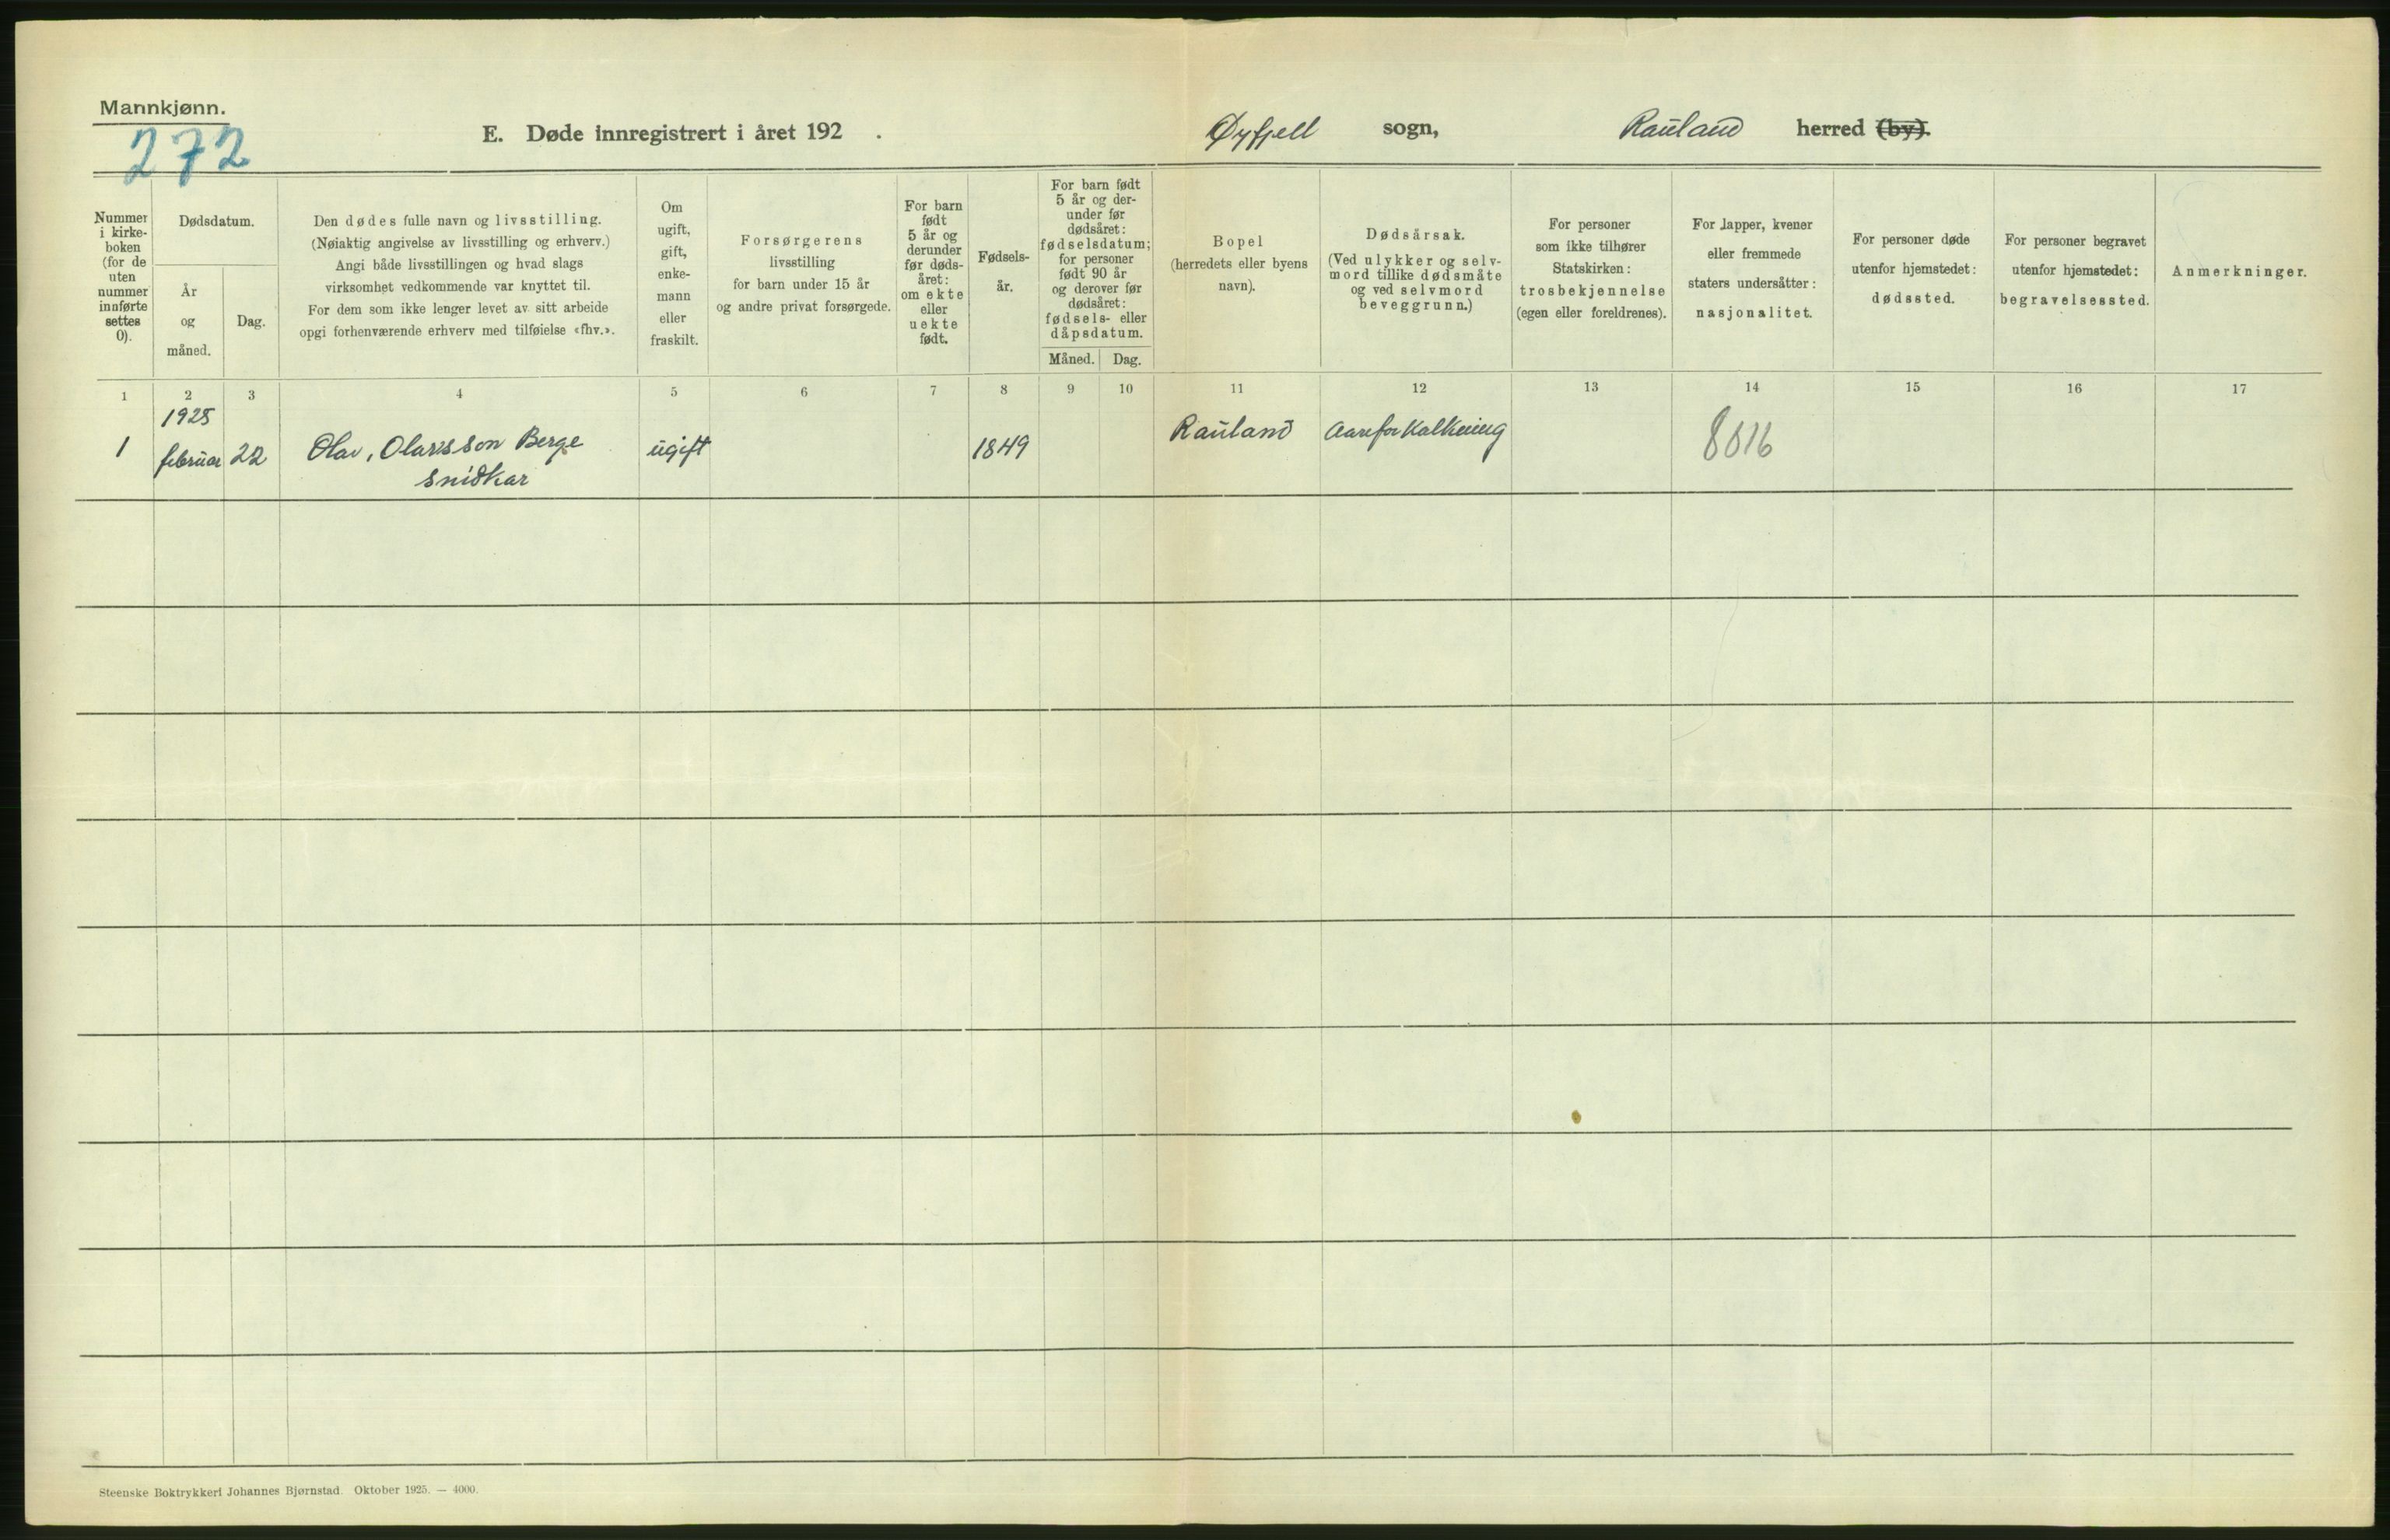 Mannkjønn.
272
E. Døde innregistrert i året 192 .
Øyfjell sogn, Rauland herred (by).
Nummer
i kirke-
boken
(for de
uten
nummer
innførte
settes
0).
Dødsdatum.
År
og
måned.
Dag.
Den dødes fulle navn og livsstilling.
(Nøiaktig angivelse av livsstilling og erhverv.)
Angi både livsstillingen og hvad slags
virksomhet vedkommende var knyttet til.
For dem som ikke lenger levet av sitt arbeide
opgi forhenværende erhverv med tilføielse «fhv.».
Om
ugift,
gift,
enke-
mann
eller
fraskilt.
Forsørgerens
livsstilling
for barn under 15 år
og andre privat forsørgede.
For barn
født
5 år og
derunder
før døds-
året:
om ekte
eller
uekte
født.
Fødsels-
år.
For barn født
5 år og der-
under før
dødsåret:
fødselsdatum;
for personer
født 90 år
og derover før
dødsåret:
fødsels- eller
dåpsdatum.
Måned. Dag.
Bopel
(herredets eller byens
navn).
Dødsårsak.
(Ved ulykker og selv-
mord tillike dødsmåte
og ved selvmord
beveggrunn.)
For personer
som ikke tilhører
Statskirken:
trosbekjennelse
(egen eller foreldrenes).
For lapper, kvener
eller fremmede
staters undersåtter:
nasjonalitet.
For personer døde
utenfor hjemstedet:
dødssted.
For personer begravet
utenfor hjemstedet:
begravelsessted.
Anmerkninger.
1 2 3 4 5 6 7 8 9 10 11 12 13 14 15 16 17
1925
1 februar 22 Olav, Olavsson Berge ugift 1849 Rauland Aareforkalkning 8016
snidkar
Steenske Boktrykkeri Johannes Bjørnstad. Oktober 1925. — 4000.